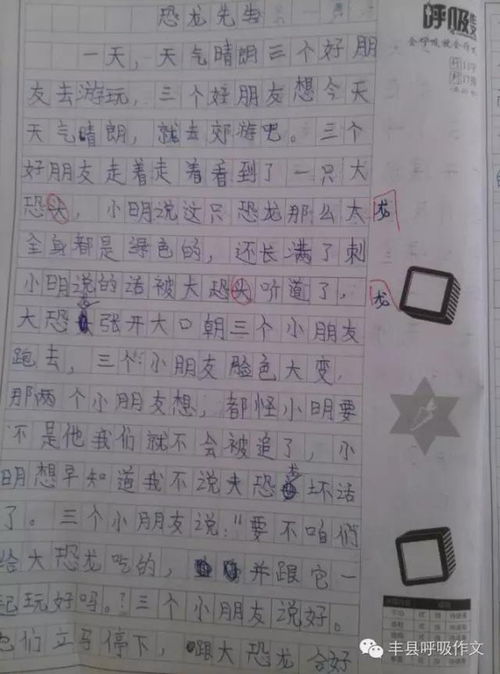 恐龙先生
一天，天气晴朗三个好朋
友去游玩，三个好朋友想今天
天气晴朗，就去郊游吧。三个
好朋友走着走着看到了一只大
恐犮，小明说这只恐龙那么大 龙
全身都是绿色的，还长满了刺
小明说的话被大恐犮听道了， 龙
大恐 张开大口朝三个小朋友
跑去，三个小朋友脸色大变，
那两个小朋友想，都怪小明要
不是他我们就不会被追了，小
明想早知道我不说大恐龙坏话
了。三个小朋友说："要不咱们
给大恐龙吃的，并跟它一
起玩好吗。？三个小朋友说好。
他们立马停下，跟大恐龙合好
呼吸
会呼吸就会作文
丰县呼吸作文